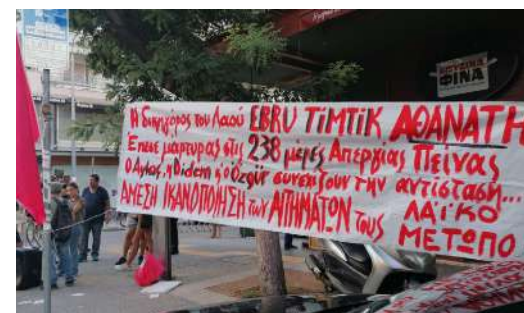 Η δικηγόρος του Λαού EBRU TiMTiK ΑΘΑΝΑΤΗ
Έπεσε μάρτυρας στις 238 μέρες Απεργίας Πείνας
Ο Aytaç, η Didem κ' ο Özgür συνεχίζουν την αντίσταση...
ΑΜΕΣΗ ΙΚΑΝΟΠΟΙΗΣΗ των ΑΙΤΗΜΑΤΩΝ τους ΛΑΪΚΟ
ΜΕΤΩΠΟ
ΦΙΝΑ